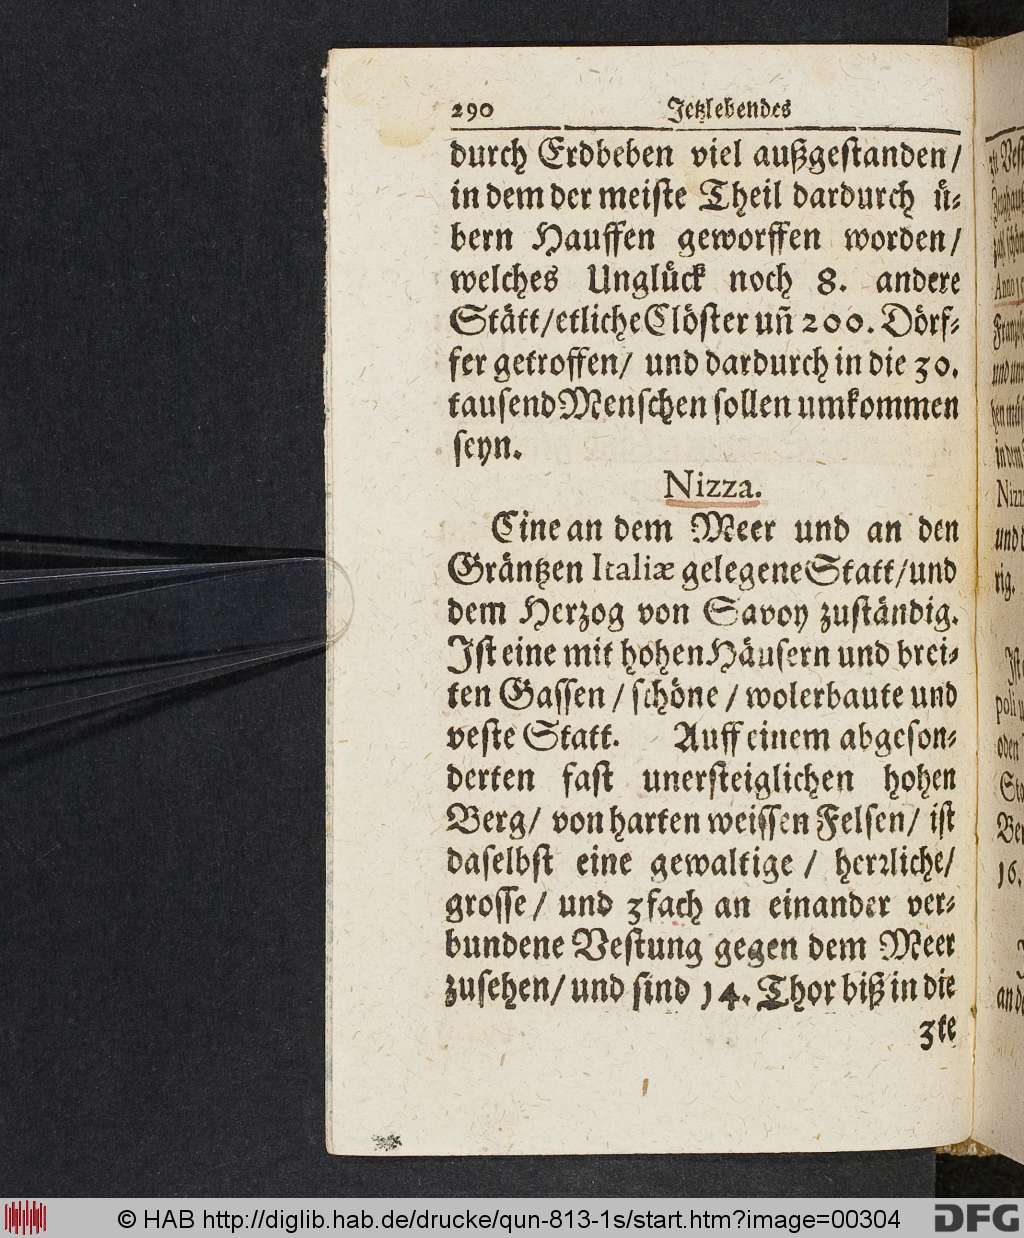 290 Jetzlebendes
durch Erdbeben viel außgestanden/
in dem der meiste Theil dardurch ü-
bern Hauffen geworffen worden/
welches Unglück noch 8. andere
Stätt/etliche Clöster uñ 200. Dörf-
fer getroffen/ und dardurch in die 30.
tausend Menschen sollen umkommen
seyn.
Nizza.
Eine an dem Meer und an den
Gräntzen Italiæ gelegene Statt/und
dem Herzog von Savoy zuständig.
Ist eine mit hohen Häusern und brei-
ten Gassen / schöne / wolerbaute und
veste Statt. Auff einem abgeson-
derten fast unersteiglichen hohen
Berg/ von harten weissen Felsen/ ist
daselbst eine gewaltige / herrliche/
grosse / und 3fach an einander ver-
bundene Vestung gegen dem Meer
zusehen/ und sind 14. Thor biß in die
3te
© HAB http://diglib.hab.de/drucke/qun-813-1s/start.htm?image=00304
DFG